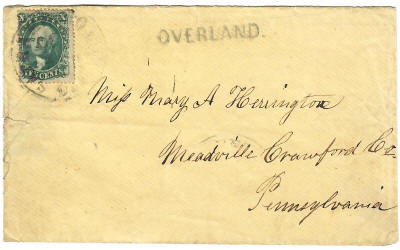 OVERLAND.
TEN CENTS
Miss Mary A Herrington
Meadville Crawford Co.
Pennsylvania